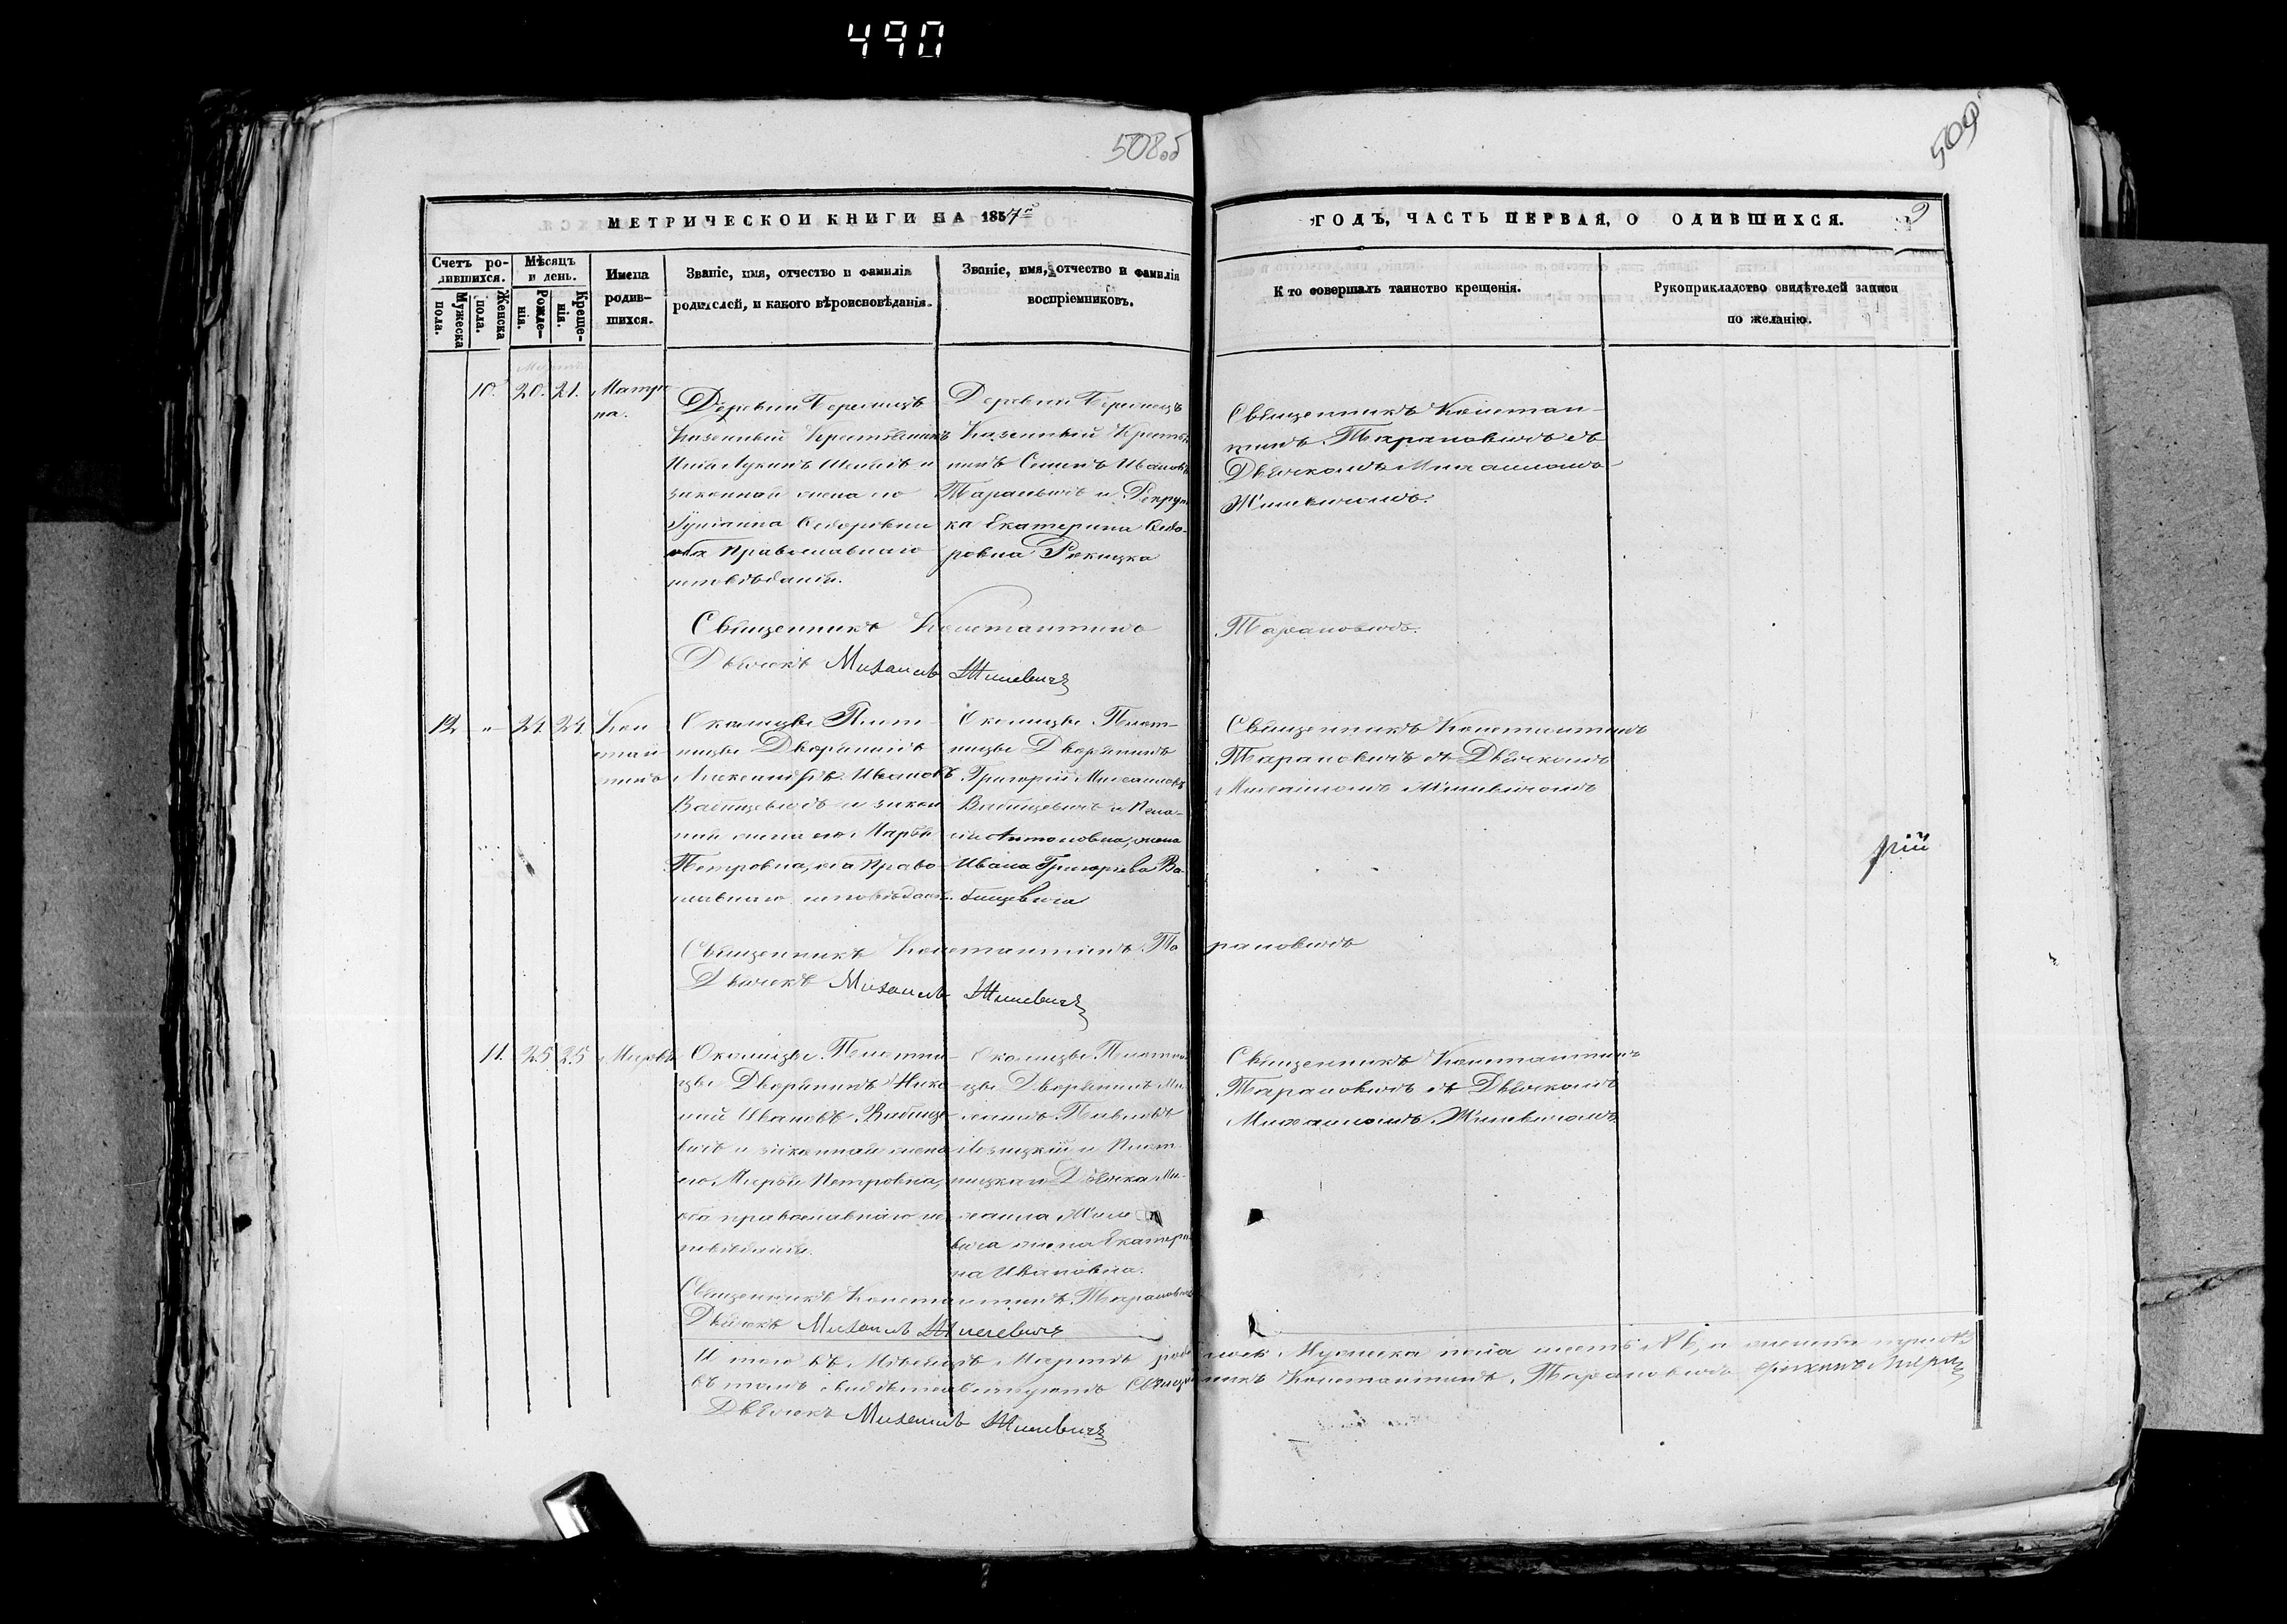 490
508об
509
МЕТРИЧЕСКОЙ КНИГИ НА 1857й
ГОДЪ, ЧАСТЬ ПЕРВАЯ, О ОДИВШИХСЯ.
9
Счетъ родившихся.
Мужеска пола.
Женска пола.
Мѣсяцъ и день.
Рожденія.
Крещенія.
Имена родившихся.
Званіе, имя, отчество и фамилія
родителей, и какого вѣроисповѣданія.
Званіе, имя, отчество и фамилія
воспріемниковъ.
Кто совершалъ таинство крещенія.
Рукоприкладство свидѣтелей записи
по желанію.
10. 20. 21. Матро
на.
Деревни
Казенный Крестьянинъ
законная жена его
Ѳеодоровна
оба Православнаго
исповѣданія.
Деревни
Казенный Крестья
нинъ Семенъ Ивановъ
и
ка Екатерина Ѳеодо-
ровна
Священникъ Констан-
тинъ Тарановичъ съ
Дьячкомъ Михаиломъ
Жилевичомъ.
Священникъ Константинъ Тарановичъ.
Дьячекъ Михаилъ Жилевичъ
12 " 24 24 Кон
стан
тинъ
Околицы Плот-
ницы Дворянинъ
Александръ Ивановъ
Вабищевичъ и закон
ная жена его Марья
Петровна, оба Право
славнаго исповѣдан.
Околицы Плот-
ницы Дворянинъ
Григорій Михаиловъ
Вабищевичъ и Пела-
гія Антоновна, жена
Ивана Григорьева Ва-
бищевича
Священникъ Константинъ
Тарановичъ съ Дьячкомъ
Михаиломъ Жилевичомъ
рій
Священникъ Константинъ Тарановичъ
Дьячекъ Михаилъ Жилевичъ
11. 25 25 Марья
Околицы Плотни-
цы Дворянинъ Нико-
лай Ивановъ Вабище-
вичъ и законная жена
его Марья Петровна,
оба православнаго ис-
повѣданія.
Околицы Плотни
цы Дворянинъ Ми
хаилъ Павловъ
и Плот-
ницкаго Дьячка Ми-
хаила Жиле
вича жена Екатери
на Ивановна.
Священникъ Константинъ
Тарановичъ съ Дьячкомъ
Михаиломъ Жилевичомъ
Священникъ Константинъ Тарановичъ
Дьячекъ Михаилъ Жилевичъ
Итого въ Мѣсяцѣ Мартѣ Мужеска пола шесть № 6, и женска
въ томъ свидѣтельствуютъ Священникъ Константинъ Тарановичъ
Дьячекъ Михаилъ Жилевичъ